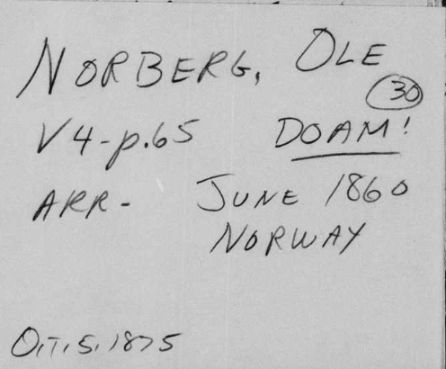 NORBERG, OLE
30
V4-p.65 DOAM!
ARR- JUNE 1860
NORWAY
O.T.S. 1875